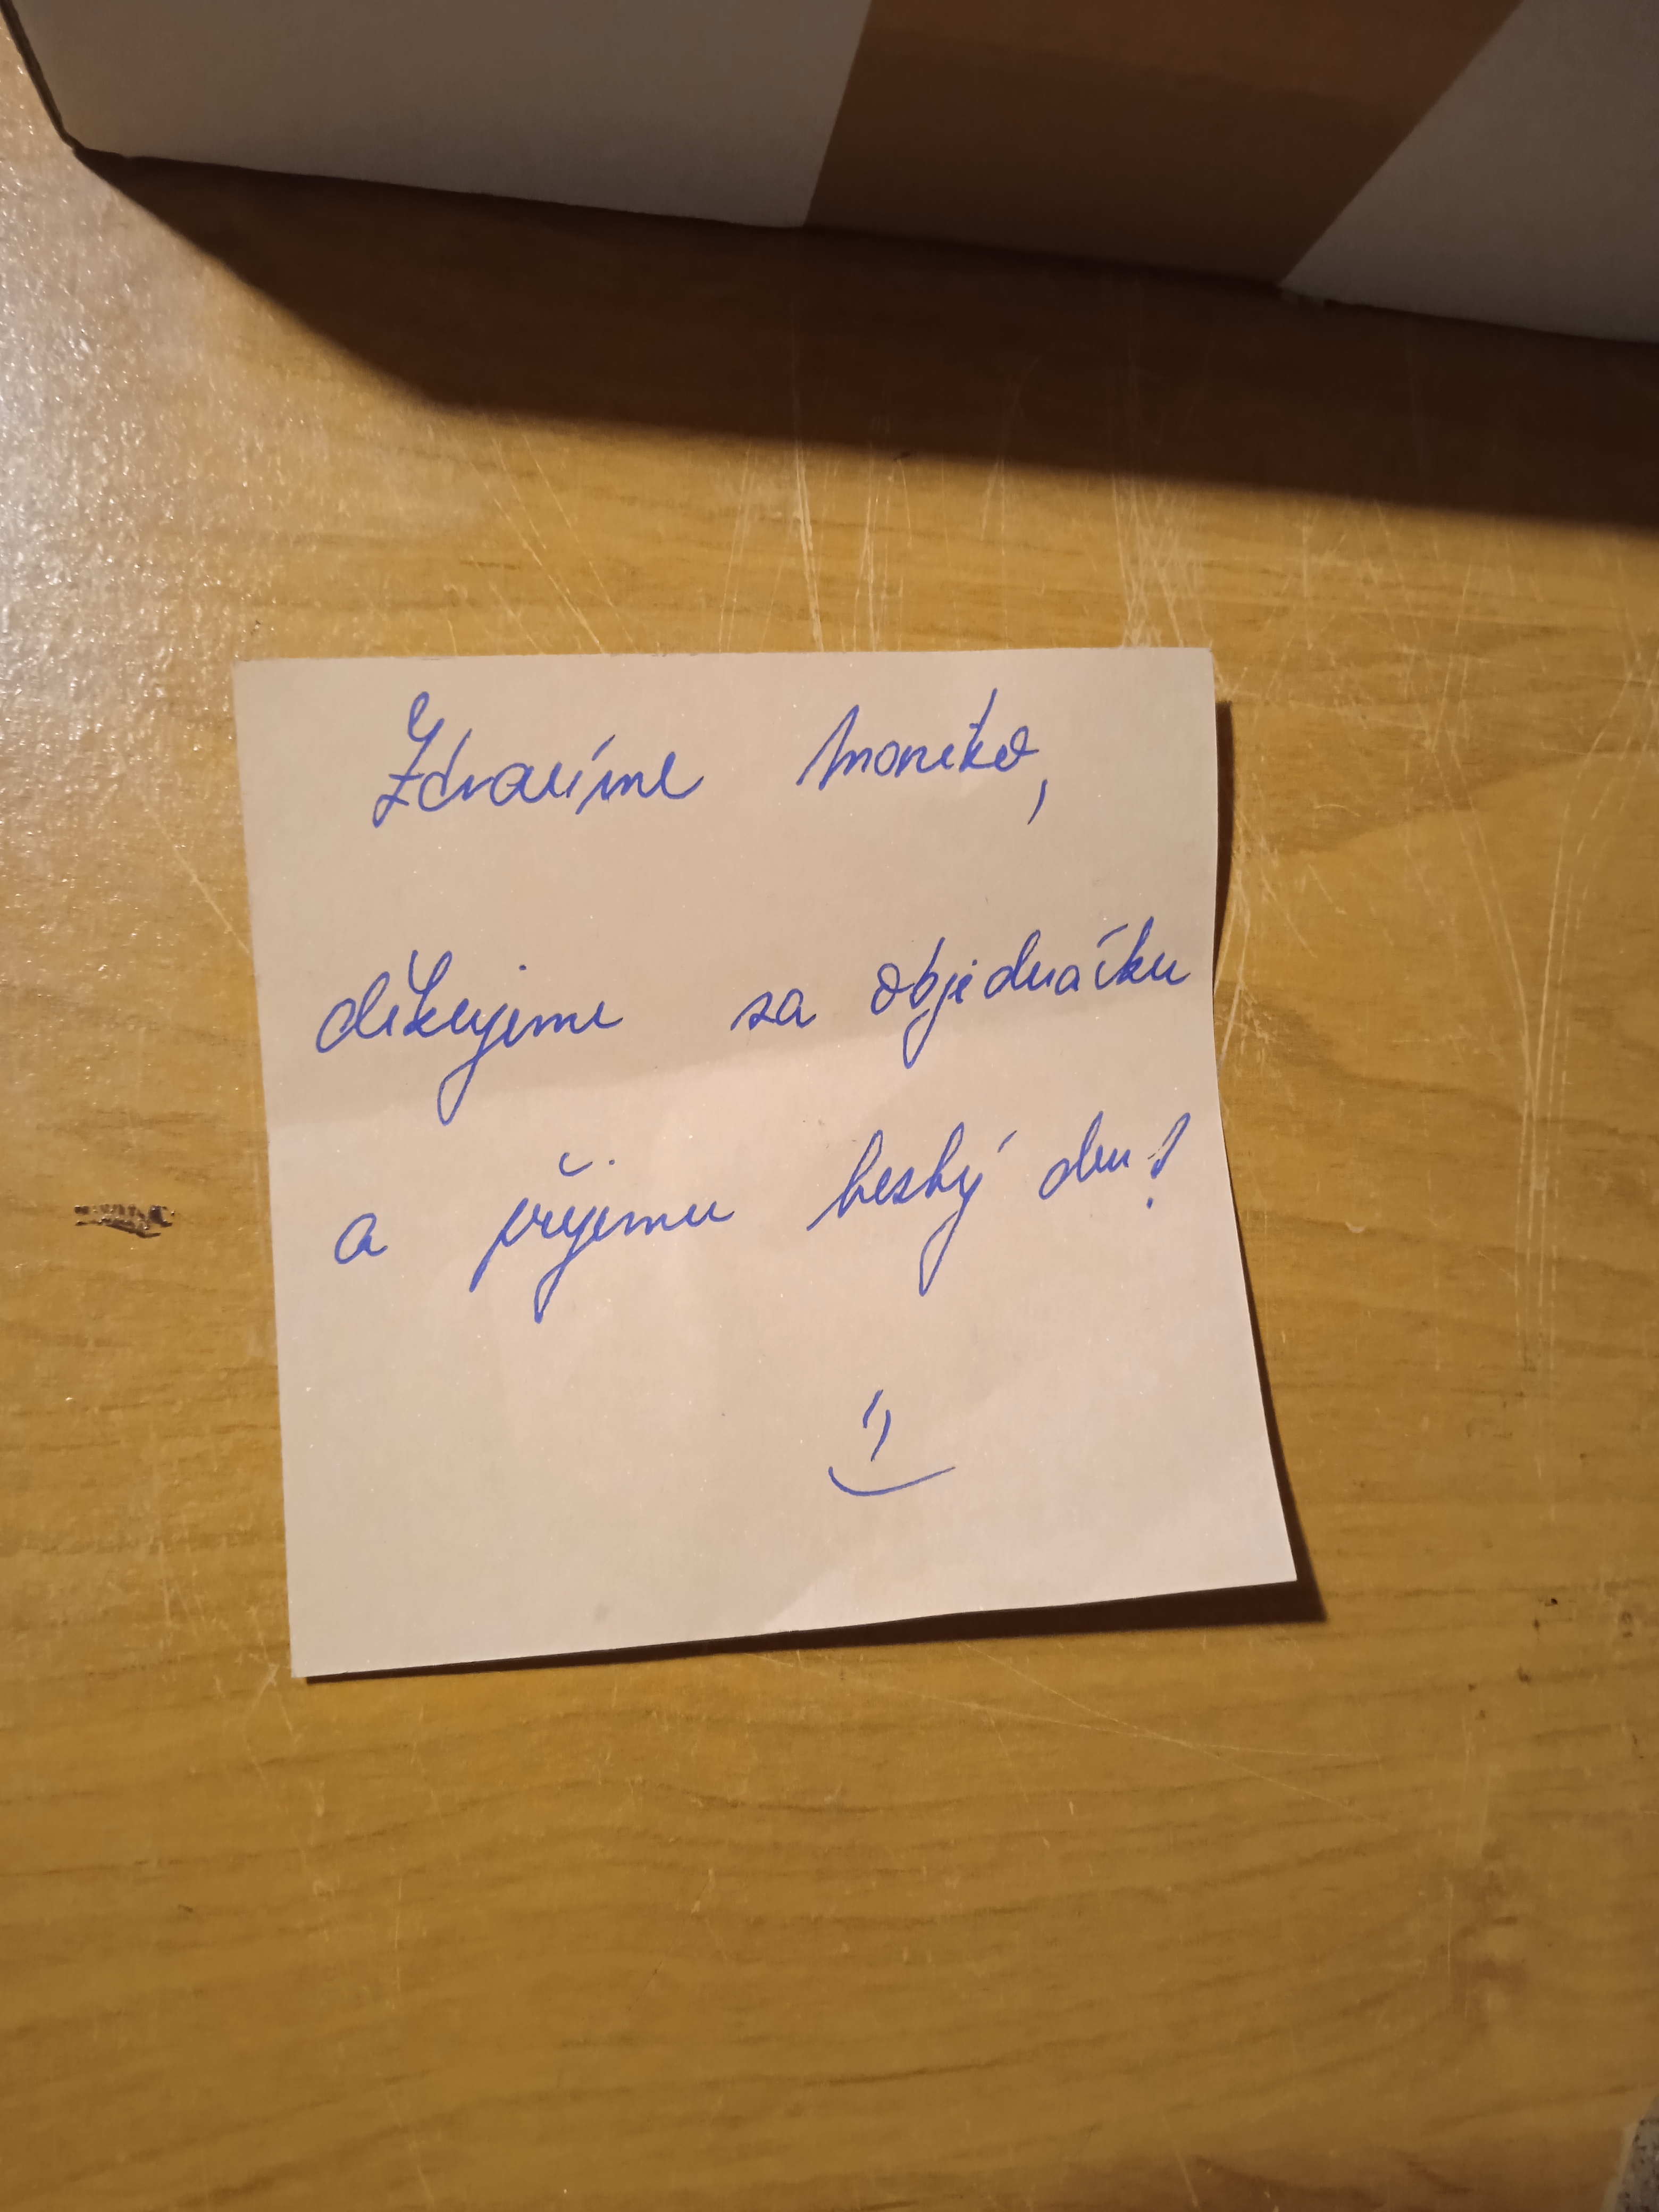 Zdravíme Moniko,
děkujeme za objednávku
a přejeme hezký den!
:)